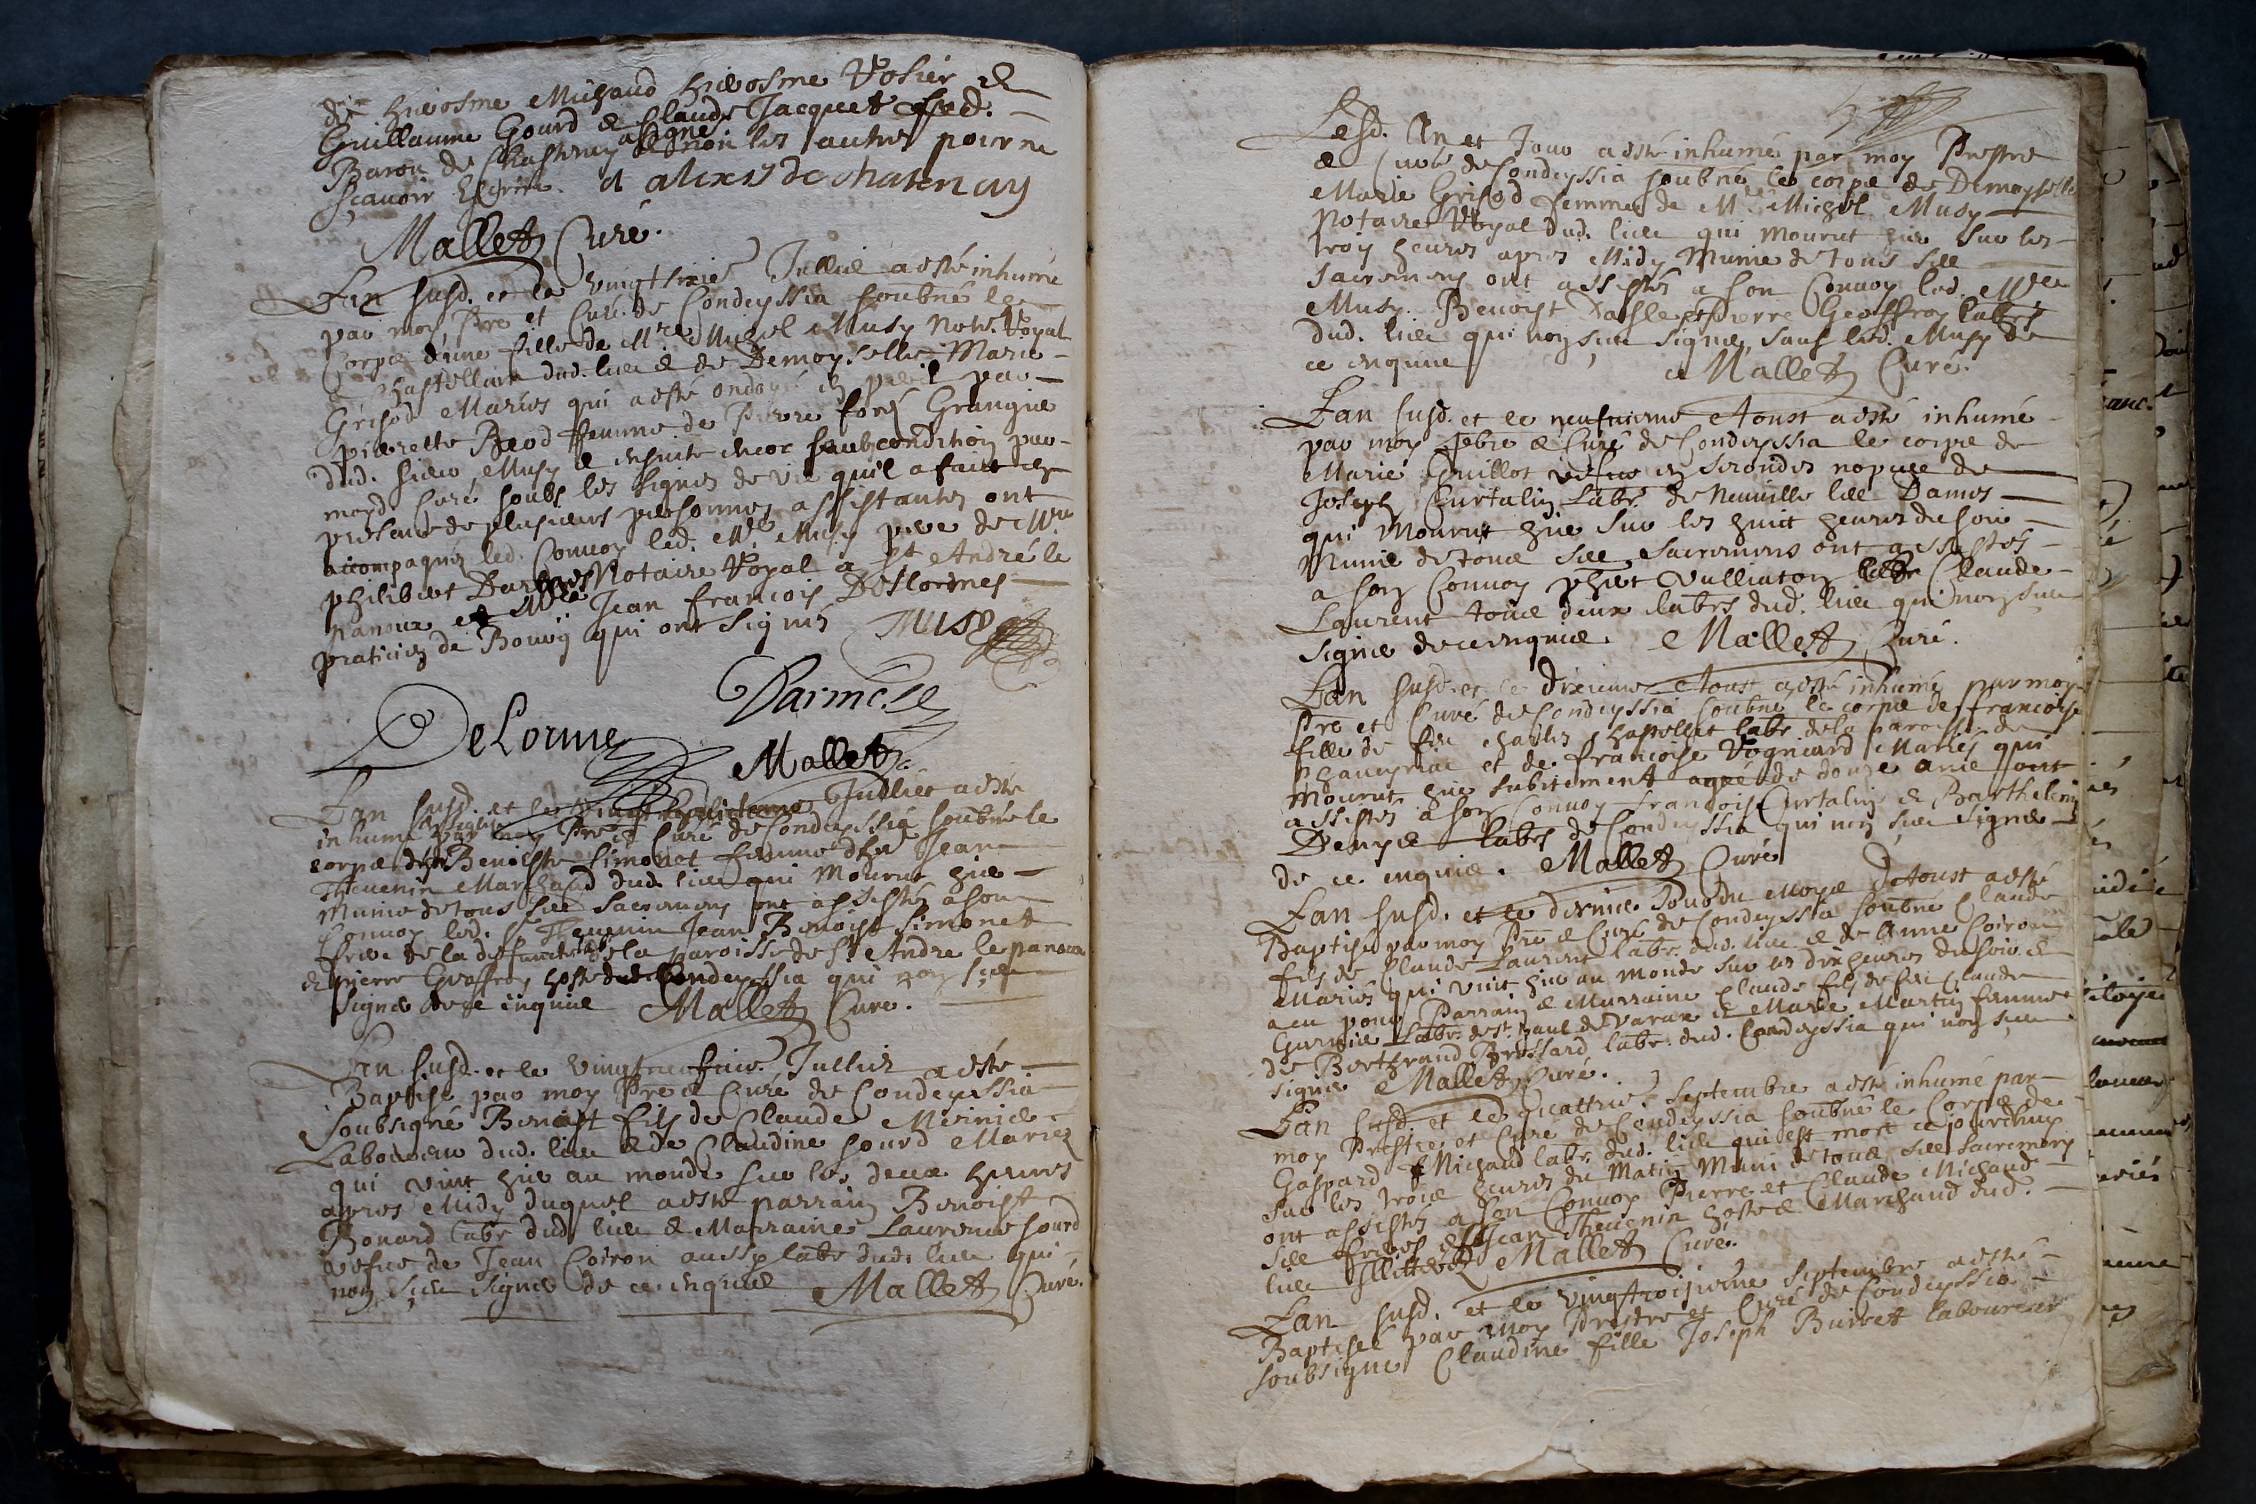 de hierosme Michaud hierosme Vosier &
Guillaume Gourd & Claude Jacquet led.
Baron de Chastenay a signé & non les autres pour ne
sçavoir Escrire. a alexis de chatenay
Mallet Curé.
Lan susd. et le vingtsixie Jullie a esté inhumé
par moy Pre et Curé de Condeyssia soubné le
Corps dune fille de Mre Michel Musy Notre Royal
& Chastellain dud. lieu & de Demoyselle Marie
Grisod Mariés qui a esté ondoyé en peril par
pierrette Brod femme de Pierre Grangie
dud. sieur Musy & ensuite encor soubcondition par
moyd. Curé soubs les signes de vie quil a fait en
presence de plusieurs personnes assistantes ont
accompagnés led. Convoy led. Mre Musy pere de Mre
philibert Notaire Royal a St André le
panoux et Mre Jean francois DeLormes
praticien de Bouvy qui ont signés MUSY
Darmesle
DeLorme
Mallet
Lan susd. et le Jullies a esté
inhumé par moy Pre & Curé de Condeyssia soubné le
corps de Benoiste Simonet femme du Sr Jean
Thevenin Marchand dud. lieu qui Mourut hie
Munie de tous see sacremens ont assistés a son
Convoy led. Sr Thevenin Jean Benoist Simonet
frere de la deffuncte de la paroisse de St Andre le panoux
& pierre Geoffroy hoste dud. Condeyssia qui non sceu
signé de ce inquie Mallet Curé.
Lan susd. et le vingtneufuie Jullies a esté
Baptisé par moy Pre & Curé de Condeyssia
soubsigné Benoist fils de Claude Mernie
Laboureur dud. lieu & de Claudine sourd Mariez
qui vint hie au monde sur les deux heures
apres Midy duquel a esté parrain Benoist
Bonard labr dud. lieu & Marraine Laurence sourd
vefue de Jean Coiron aussy labr dud. lieu qui
non sceu signé de ce enquie Mallet Curé.
Lesd. An et Jour a esté inhumé par moy Prestre
& Curé de Condeyssia soubné le corps de Demoyselle
Marie Grisod femme de Mre Michel Musy
Notaire Royal dud. lieu qui mourut hie sur les
troy heures apres Midy Munie de tous see
sacremens ont assistés a son Convoy led. Mre
Musy Benoyst Dasle et Pierre Geoffroy labrs
dud. lieu qui non sceu signé, sauf led. Musy de
ce enquie Mallet Curé.
Lan susd. et le neufuieme Aoust a esté inhumé
par moy pbre & Curé de Condeyssia le corps de
Marie Guillot vefue en secondes nopces de
Joseph Curtalin Labr. de Neuville lee Dames
qui Mourut hie sur les huict heures du soir
Munie de toue see sacremens ont assistés
a son Convoy phibt Vulliaton Claude
Laurent toue deux labrs dud. lieu qui non sceu
signé de ce enquie. Mallet Curé.
Lan susd. et le dixieme Aoust a esté inhumé par moy
Pre et Curé de Condeyssia soubné le corps de francoise
fille de feu Charles Chapellet labr de la paroisse de
Chaveyriac et de francoise Vogniard Mariés qui
mourut hie subitement agée de douze ans ont
assistés a son Convoy francois Curtalin & Barthelemy
Denys labrs de Condeyssia qui non sceu signé
de ce enquie. Mallet Curé
Lan susd. et le dernie Jour du Moys d'Aoust a esté
Baptisé par moy Pre & Curé de Condeyssia soubné Claude
fils de Claude Laurent labr. dud. lieu & de Anne Coiron
Mariés qui vint hie au monde sur les dix heures du soir &
a eu pour Parrain & Marraine Claude fils de feu Claude
Gurnie Labr. de St paul de Varax & Marie Martin femme
de Berthrand Brossard labr. dud. Condeyssia qui non sceu
signé Mallet Curé.
Lan susd. et le quattrie Septembre a esté inhumé par
moy Prestre et Curé de Condeyssia soubné le Corps de
Gaspard Michaud labr. dud. lieu qui est mort ce jourdhuy
sur les troie heures du Matin Muni de toue see sacremens
ont assistés a son Convoy Pierre et Claude Michaud
see freres & Jean Thevenin hoste & Marchand dud.
lieu Illitterez Mallet Curé.
Lan susd. et le vingttroisieme Septembre a esté
Baptisée par moy Prestre et Curé de Condeyssia
soubsigné Claudine fille Joseph Burret laboureur